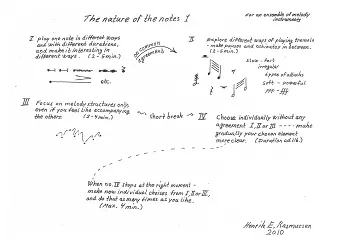 The nature of the notes 1
For an ensemble of melody
instruments
I Play one note in different ways
and with different durations,
and make it interesting in
different ways. (2-6 min.)
etc.
on common
agreement
II Explore different ways of playing tremolo
- make pauses and ostinatos in between.
(2-6 min.)
slow - fast
irregular
types of attacks
soft - powerful
ppp - fff
III Focus on melody structures only
even if you feel like accompanying
the others. (2-4 min.)
Short break
IV Choose individually without any
agreement I, II or III ---- make
gradually your chosen element
more clear. (Duration ad lib.)
When no. IV stops at the right moment -
make new individual choices from I, II or III,
and do that as many times as you like.
(Max. 4 min.)
Henrik E. Rasmussen
2010